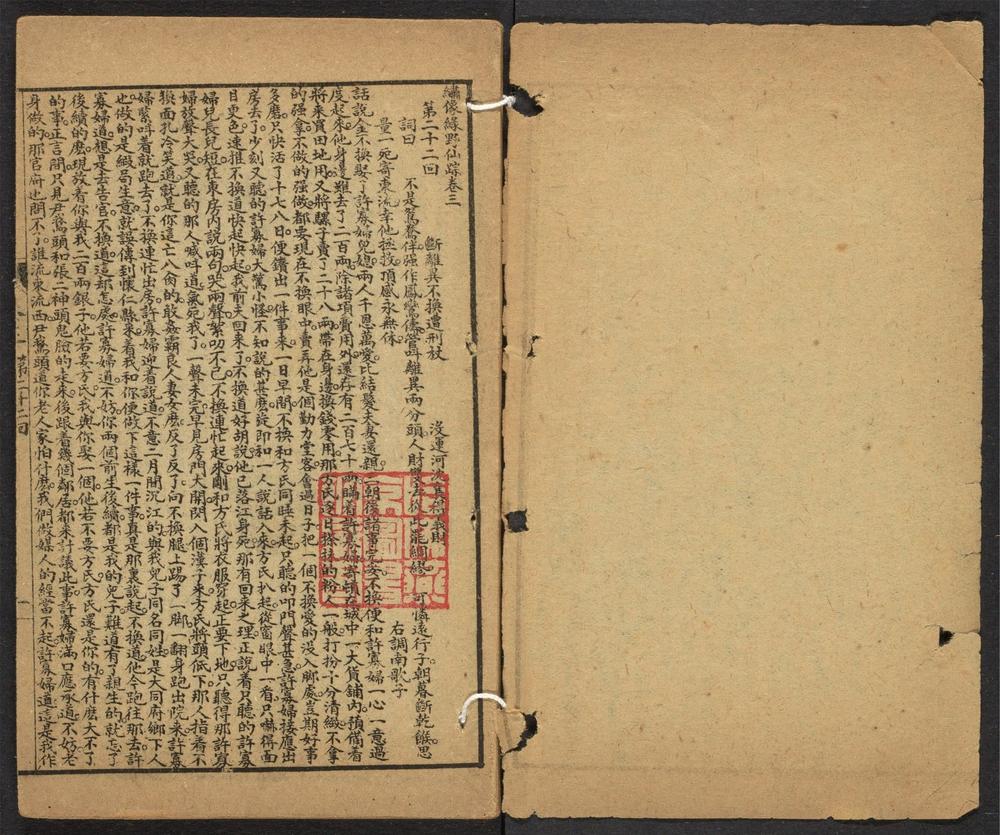 繡像綠野仙踪卷三
第二十二回　斷離異不換遭刑杖　沒運河沈襄得義財
詞曰　不是鴛鴦伴強作鳳鸞儔當耳離異兩分頭人財雙去從此罷綢繆　可憐遠行子朝暮斷乾餱思
量一死寄東流幸他拯救頂感永無休　右調南歌子
話說金不換娶了許寡婦兒媳兩人千恩萬愛比結髮夫妻還親一朝後諸事完妥不換便和許寡婦一心一意過
度起來他身邊雖去了二百兩除諸項費用外還存有二百七十兩瞞着許寡婦寄頓在城中一大貨舖內預備着
將來買田地用又將騾子賣了二十八兩帶在身邊換錢零用那方氏逐日搽抹的粉人一般打扮十分清緻不拿
的強拿不做的強做都要現在不換眼中賣弄他是個勤力堂客會過日子把一個不換愛的沒入脚處豈期好事
多磨只快活了十七八日便鑽出一件事來一日早間不換和方氏同睡未起只聽的叩門聲甚急許寡婦接應出
房去了少刻又聽的許寡婦大驚小怪不知說的甚麽旋即和一人說話入來方氏扒起從窗眼中一看只嚇得面
目更色速推不換道快起快起我前夫回來了不換道好胡說他已落江身死那有回來之理正說着只聽的許寡
婦兒長兒短在東房內說兩句哭兩聲絮叨不已不換連忙起來剛和方氏將衣服穿起正要下地只聽得那許寡
婦放聲大哭又聽的那人喊呌道氣死我了一聲未完早見房門大開闖入個漢子來方氏將頭低下那人指着不
換面孔冷笑道就是你這亡八肏的敢姦霸良人妻女麽反了反了向不換腿上踢了一脚一翻身跑出院來許寡
婦緊呌着就跑去了不換連忙出房許寡婦迎着說道不意二月間沉江的與我兒子同名同姓是大同府鄉下人
也做的是緞局生意就誤傳到懷仁縣來着我和你便做下這樣一件事真是那裏說起不換道他今跑往那去許
寡婦道想是去告官不換道這却怎處許寡婦道不妨你兩個前生後續都是我的兒子難道有了親生的就忘了
後續的麽現放着你與我二百兩銀子他若要方氏我與你娶一個他若不要方氏方氏還是你的有什麽大不了
的事正言間只見尹鵞頭和張二神頭鬼臉的走來後跟着幾個鄰居都來計議此事許寡婦滿口應承道不妨老
身做的那官府也問不了誰流東流西尹鵞頭道你老人家怕什麽我們做媒人的經當不起許寡婦道這是我作
第二十二回
一